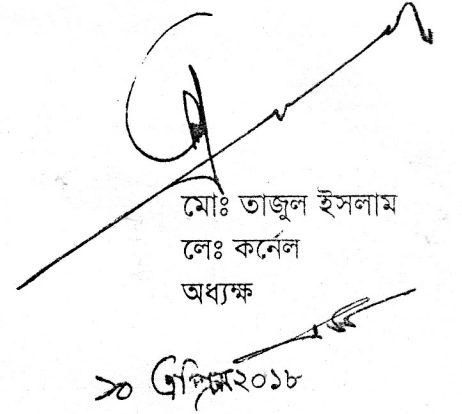 মোঃ তাজুল ইসলাম
লেঃ কর্নেল
অধ্যক্ষ
১০ এপ্রিল ২০১৮